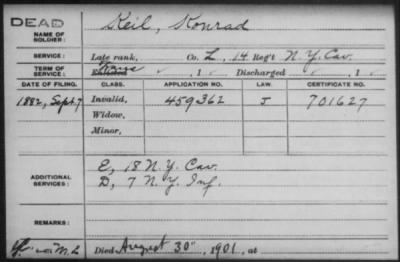 DEAD
NAME OF SOLDIER: Keil, Konrad
SERVICE: Late rank, Co. L, 14 Reg't N.Y. Cav.
TERM OF SERVICE: Enlisted , 1 Discharged , 1
DATE OF FILING. CLASS. APPLICATION NO. LAW. CERTIFICATE NO.
1882, Sept. 7 Invalid, 459362 J 701627
Widow,
Minor,
ADDITIONAL SERVICES: E, 18 N.Y. Cav.
D, 7 N.Y. Inf.
REMARKS:
Died August 30", 1901, at